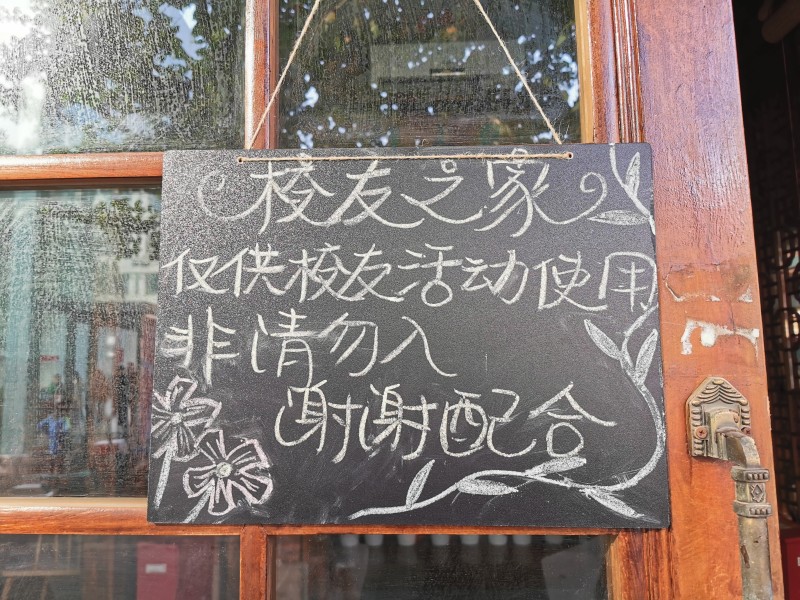 校友之家
仅供校友活动使用
非请勿入
谢谢配合